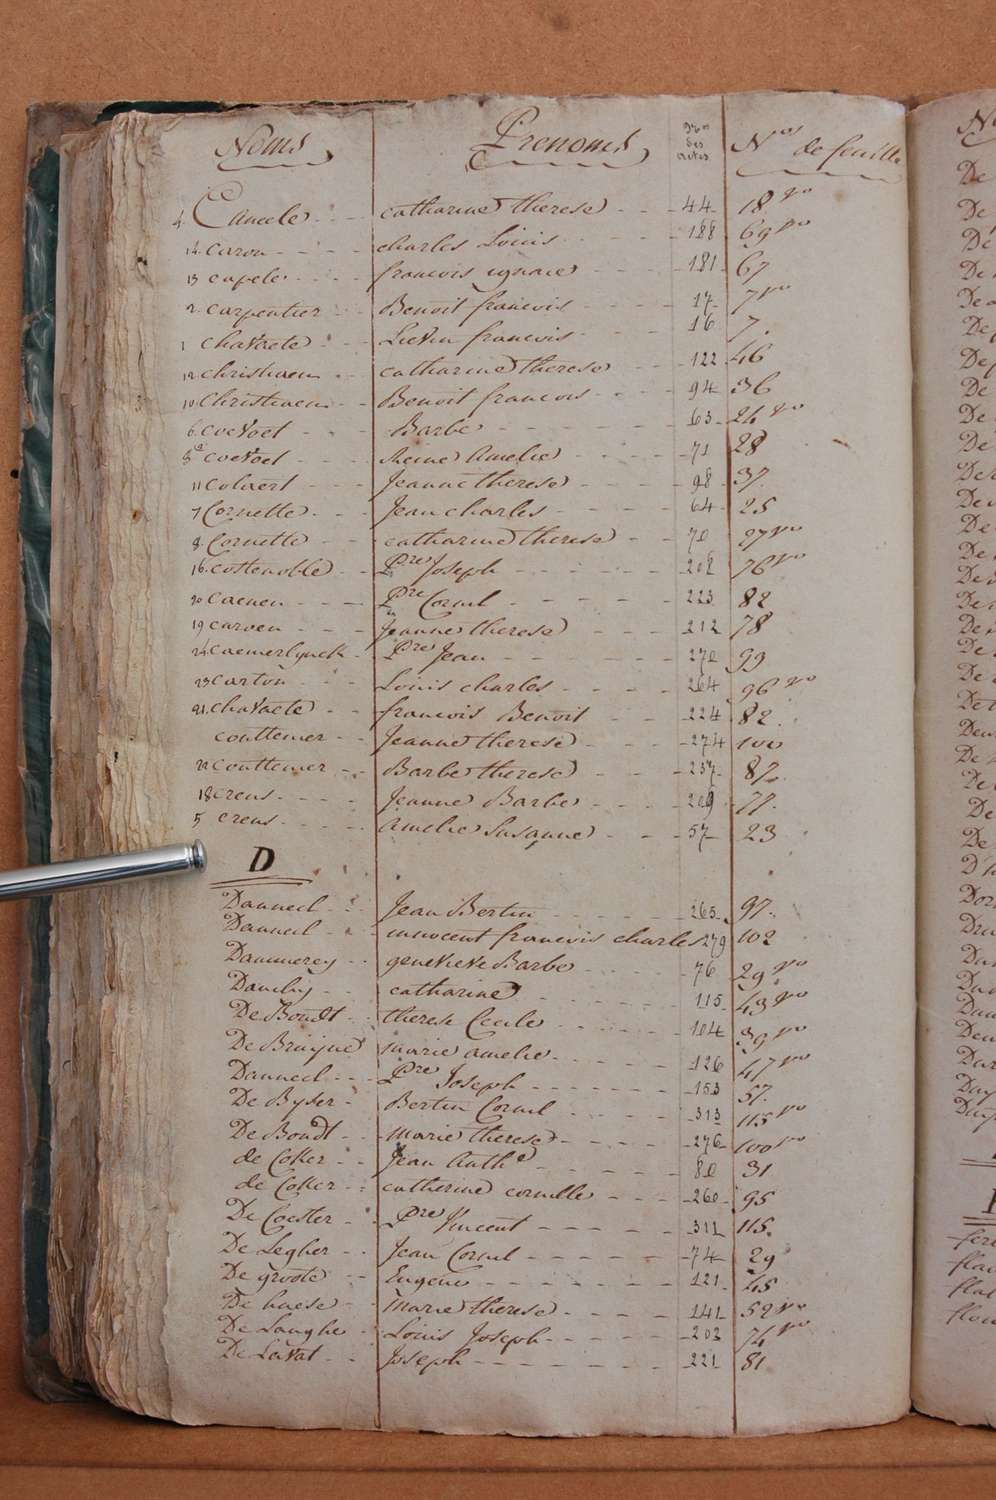 Noms Prenoms Nos des actes Nos de feuille
4. Cancele catharine therese 44 18 vo
14. caron charles Louis 188 69 vo
13 capele francois ignace 181 67
2. carpentier Benoit francois 17 7 vo
1 chavaete Lievin francois 16 7.
12 christiaen catharine therese 122 46
10 Christiaen Benoit francois 94 36
6. coevoet Barbe 63 24 vo
9 coevoet Reine Amelie 71 28
11 colaert Jeanne therese 98 37.
7 Cornette Jean charles 64 25
8. Cornette catharine therese 70 27 vo
16. cottenoble Pre Joseph 208 76 vo
20 caenen Pre Cornil 223 82
19 carven Jeanne therese 212 78
24 caemerlynck Pre Jean 270 99
23 carton Louis charles 264 96 vo
21. chavaete francois Benoit 224 82.
couttemer Jeanne therese 274 100
22 couttemer Barbe therese 237 87.
18 creus Jeanne Barbe 209 77.
5 creus amelie Susanne 57 23
D
Danneel Jean Bertin 265. 97.
Danneel innocent francois charles 279 102
Dammerey genevieve Barbe 76 29 vo
Dambry catharine 115. 43 vo
De Boudt therese Cecile 104 39 vo
De Bruijne marie amelie 126 47 vo
Danneel Pre Joseph 153 57.
De Byser Bertin Cornil 313 115 vo
De Boudt marie therese 276 100 vo
de Coker Jean Anthe 80 31
de Coker catherine cornille 260 95
De Coester Pre Vincent 311 115.
De Legher Jean Cornil 74 29
De groote Eugene 121. 45
De haese marie therese 141 52 vo
De Langhe Louis Joseph 203 74 vo
De Lavat Joseph 221 81
De
De
De
De
De
De
De
De
De
De
De
De
De
De